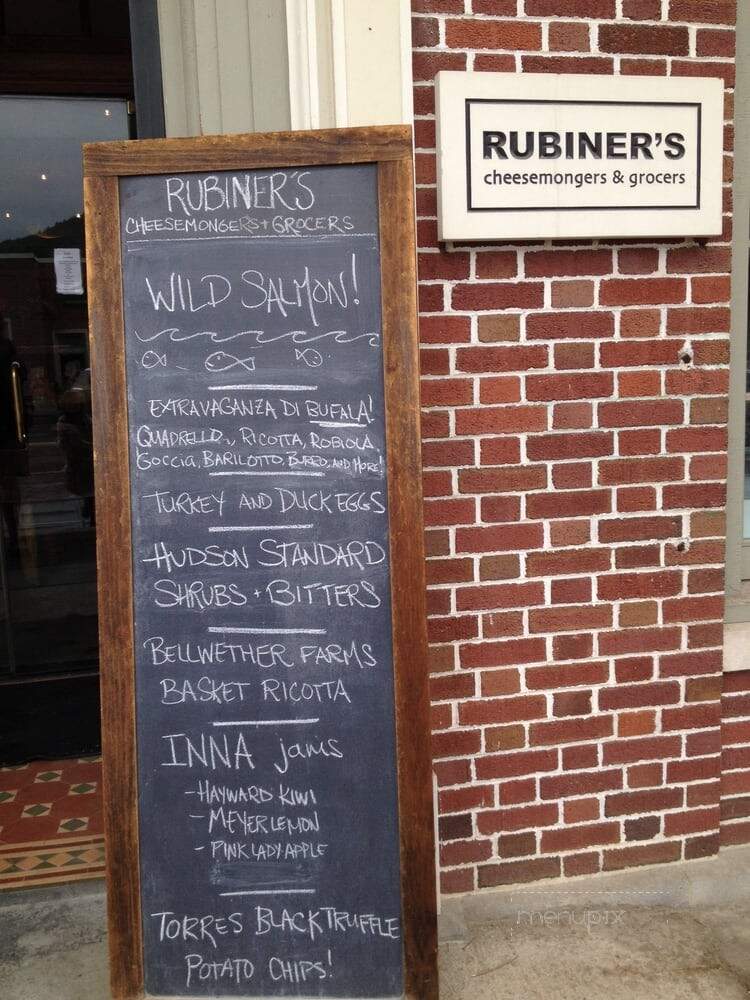 RUBINER'S
CHEESEMONGERS + GROCERS
WILD SALMON!
EXTRAVAGANZA DI BUFALA!
QUADRELLO, RICOTTA, ROBIOLA,
GOCCIA, BARILOTTO, BUREO, AND MORE!
TURKEY AND DUCK EGGS
HUDSON STANDARD
SHRUBS + BITTERS
BELLWETHER FARMS
BASKET RICOTTA
INNA jams
- HAYWARD KIWI
- MEYER LEMON
- PINK LADY APPLE
TORRES BLACK TRUFFLE
POTATO CHIPS!
RUBINER'S
cheesemongers & grocers
menupix